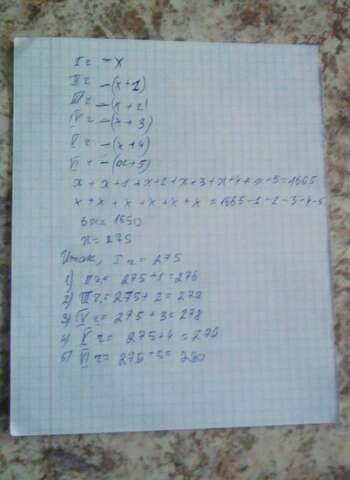 I г. – x
II г. – (x+1)
III г. – (x+2)
IV г. – (x+3)
V г. – (x+4)
VI г. – (x+5)
x + x+1 + x+2 + x+3 + x+4 + x+5 = 1665
x + x + x + x + x + x = 1665-1-2-3-4-5
6x = 1650
x = 275
Итак, I г = 275
1) II г = 275+1 = 276
2) III г = 275+2 = 277
3) IV г = 275+3 = 278
4) V г = 275+4 = 279
5) VI г = 275+5 = 280